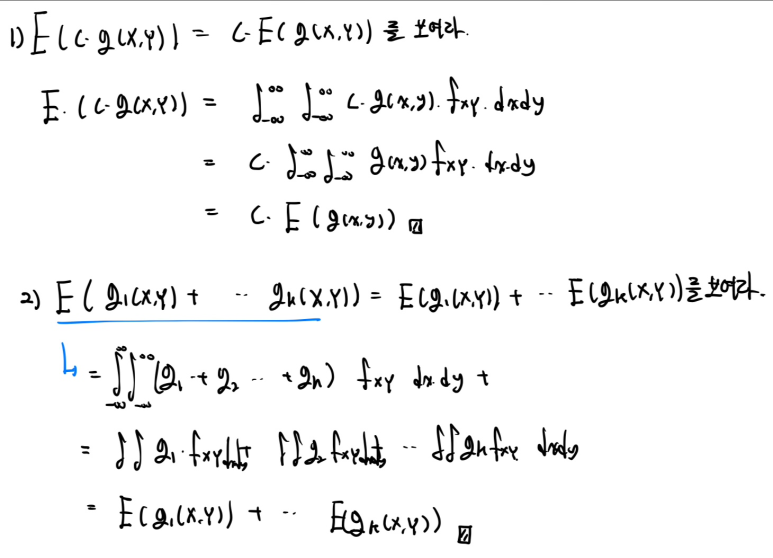 1) E(c·g(X,Y)) = c·E(g(X,Y)) 를 보여라.
E·(c·g(X,Y)) = ∫_{-∞}^{∞} ∫_{-∞}^{∞} c·g(x,y)·f_{XY}·dxdy
= c·∫_{-∞}^{∞} ∫_{-∞}^{∞} g(x,y) f_{XY}·dx·dy
= c·E(g(x,y)) ▨
2) E(g₁(X,Y) + ·· g_k(X,Y)) = E(g₁(X,Y)) + ·· E(g_k(X,Y))를 보여라.
↳ = ∫_{-∞}^{∞}∫_{-∞}^{∞}(g₁ + g₂ ·· + g_k) f_{XY} dx·dy +
= ∫∫ g₁·f_{XY}dxdy + ∫∫g₂ f_{XY}dxdy + ·· ∫∫g_k f_{XY} dxdy
= E(g₁(X,Y)) + ·· E(g_k(X,Y)) ▨